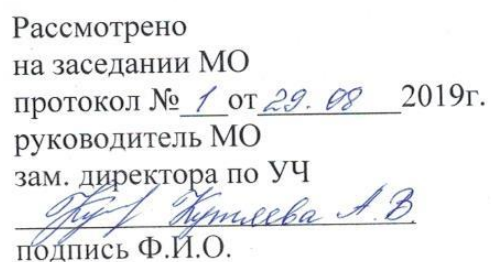 Рассмотрено
на заседании МО
протокол № 1 от 29. 08 2019г.
руководитель МО
зам. директора по УЧ
А. В.
подпись Ф.И.О.